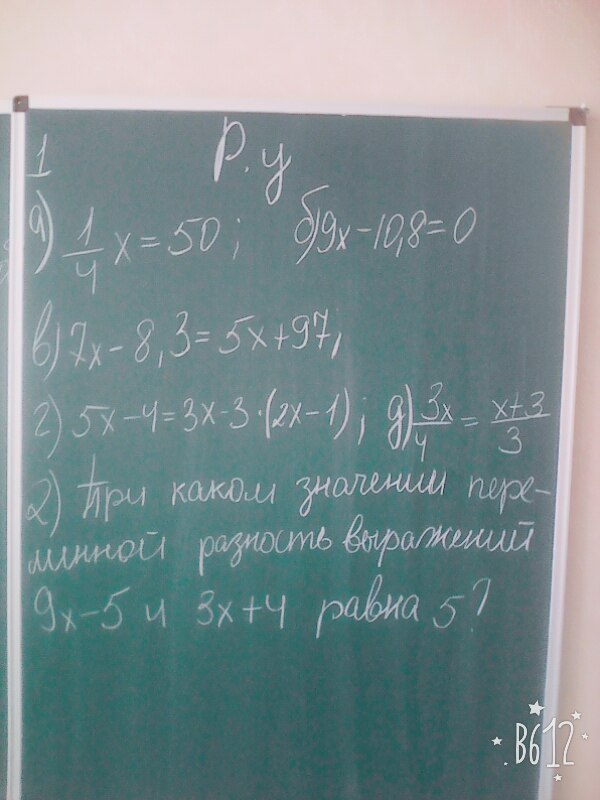 1 Р. у
а) 1/4 x = 50; б) 9x - 10,8 = 0
в) 7x - 8,3 = 5x + 97;
г) 5x - 4 = 3x - 3 · (2x - 1); д) 3x/4 = x+3/3
2) При каком значении пере-
минной разность выражений
9x - 5 и 3x + 4 равна 5?
B612